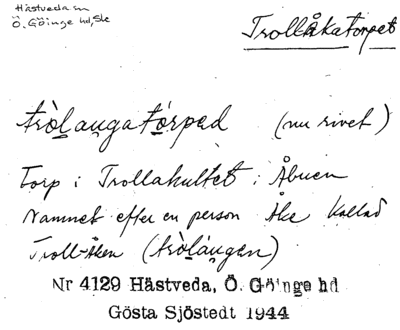 Hästveda sn
Ö. Göinge hd, Sk
Trollåkatorpet
trolangatorped (nu rivet)
Torp i Trollakultet i Åbuen
Namnet efter en person Åke kallad
Troll-Åken (trolángen)
Nr 4129 Hästveda, Ö. Göinge hd
Gösta Sjöstedt 1944